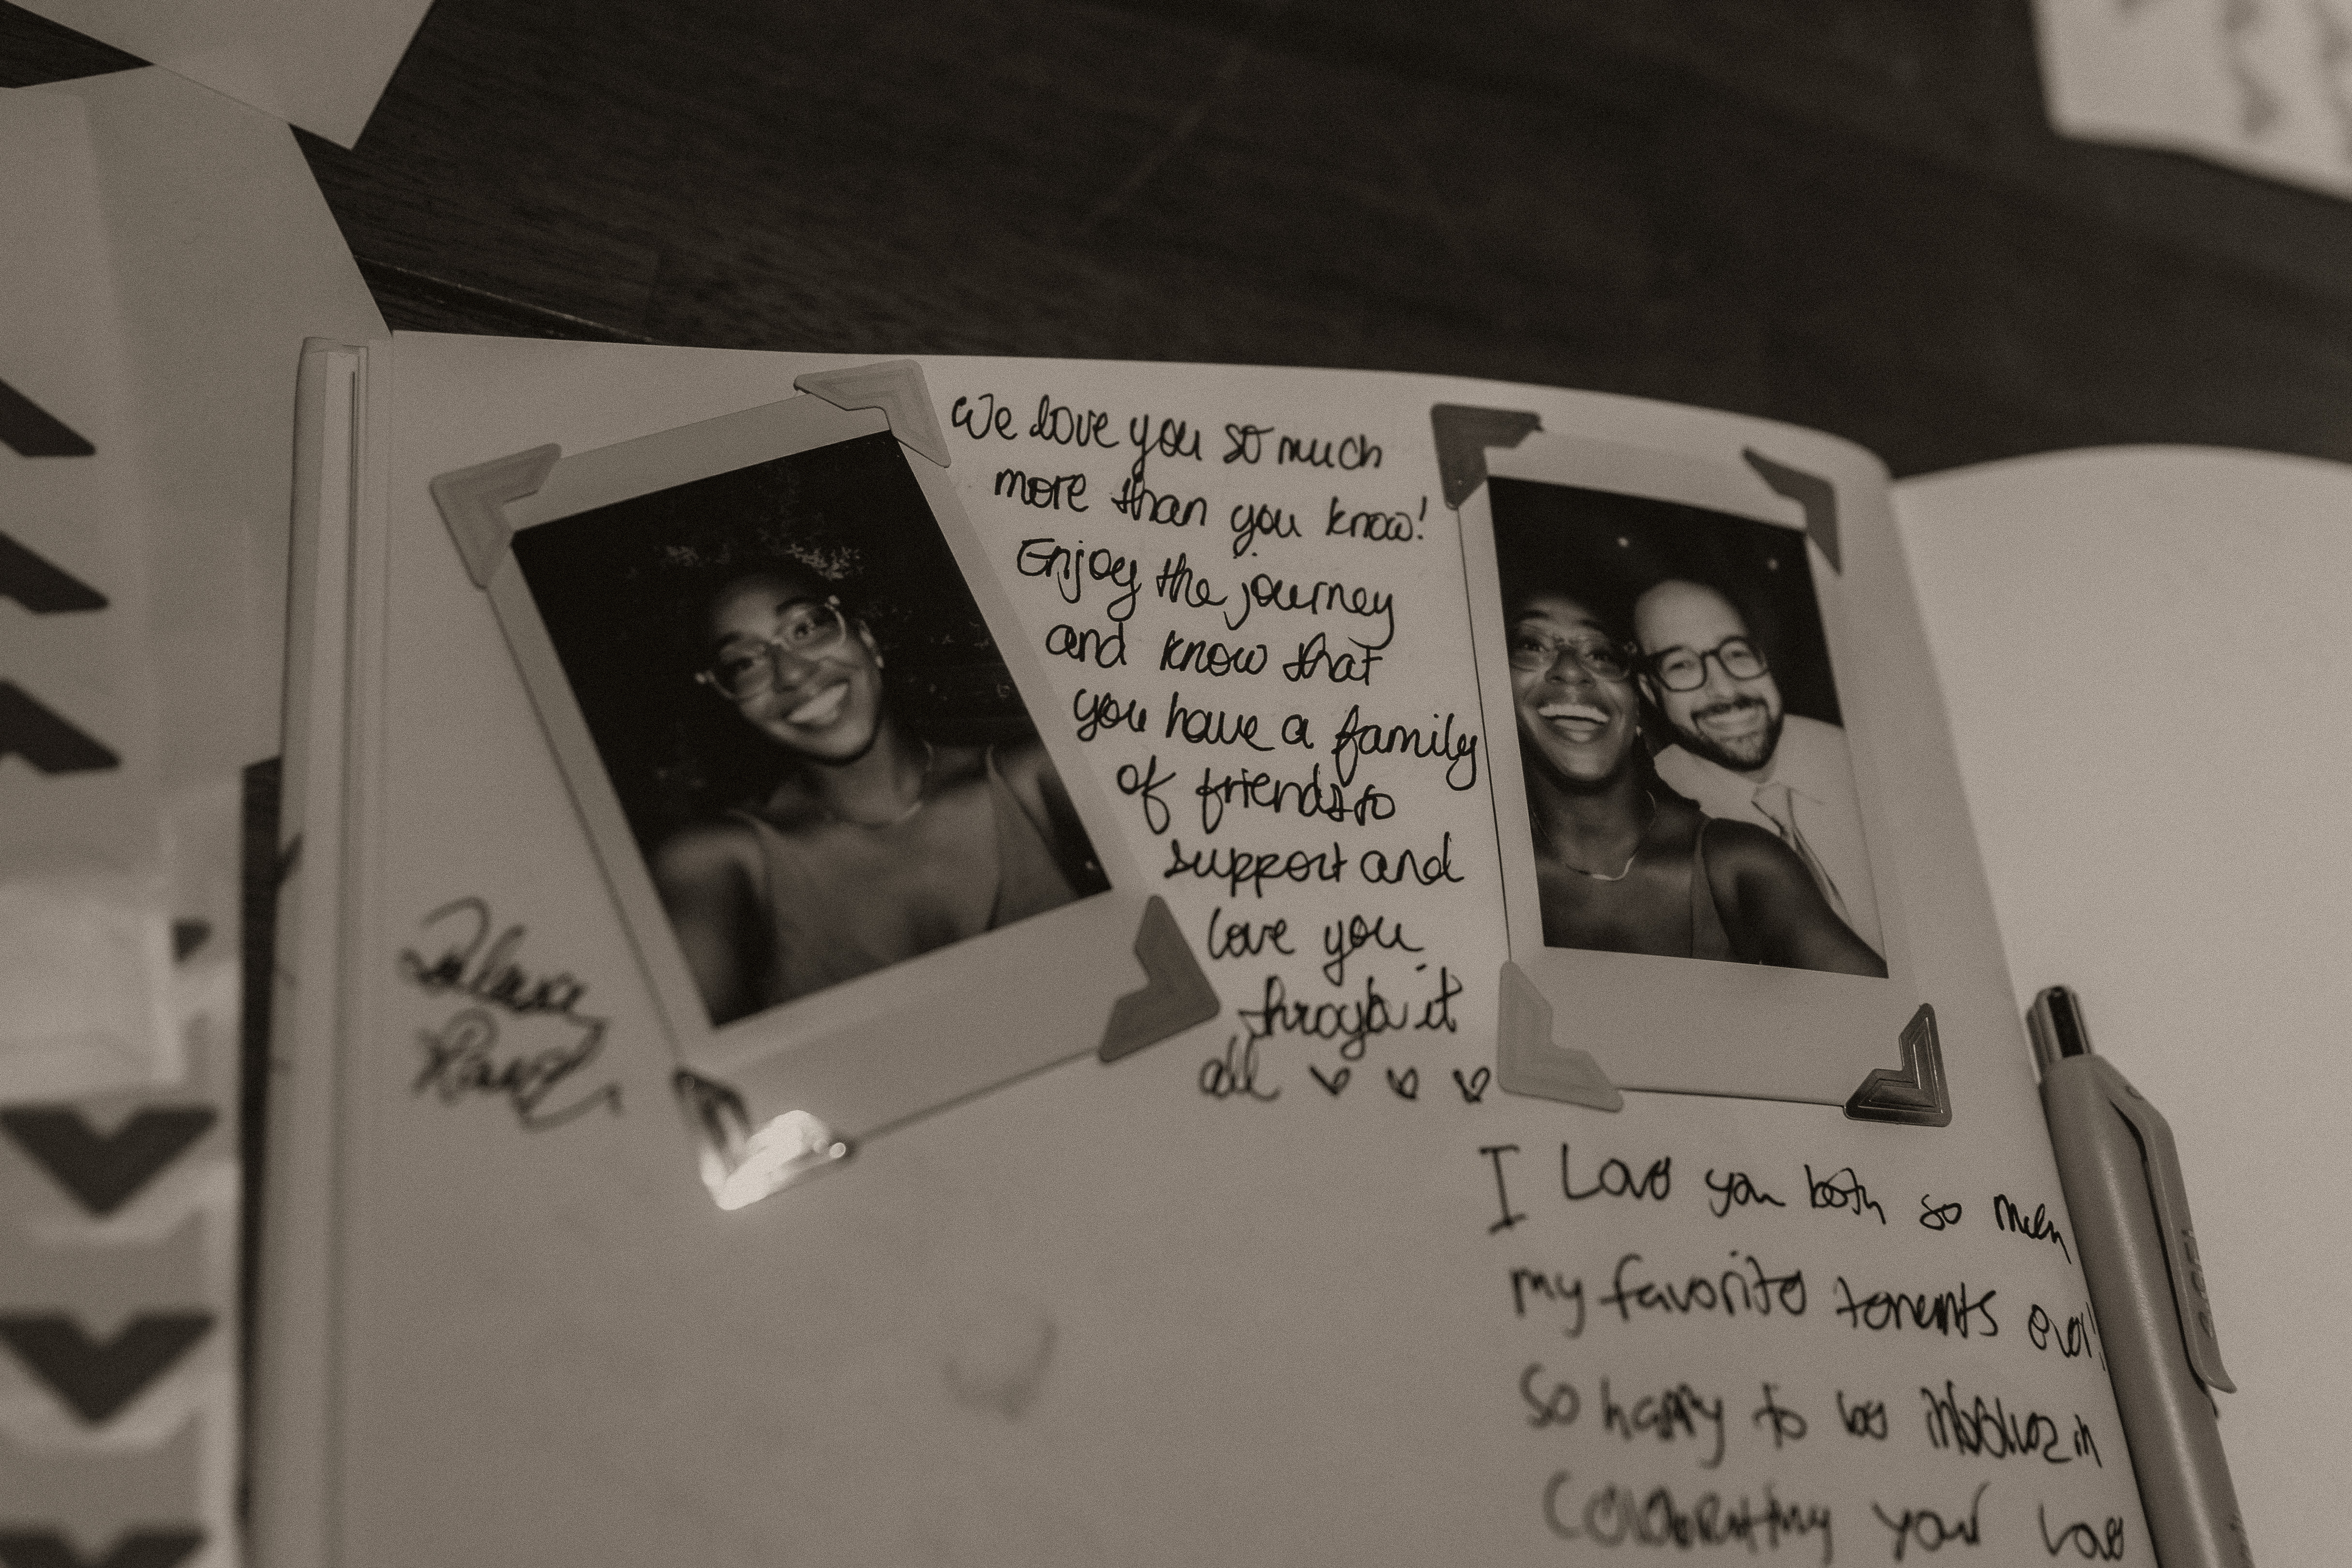 We love you so much
more than you know!
Enjoy the journey
and know that
you have a family
of friends to
support and
love you
through it
all ♡ ♡ ♡
I Love you both so much
my favorite tenents ever!
So happy to be in
Celebrating your Love